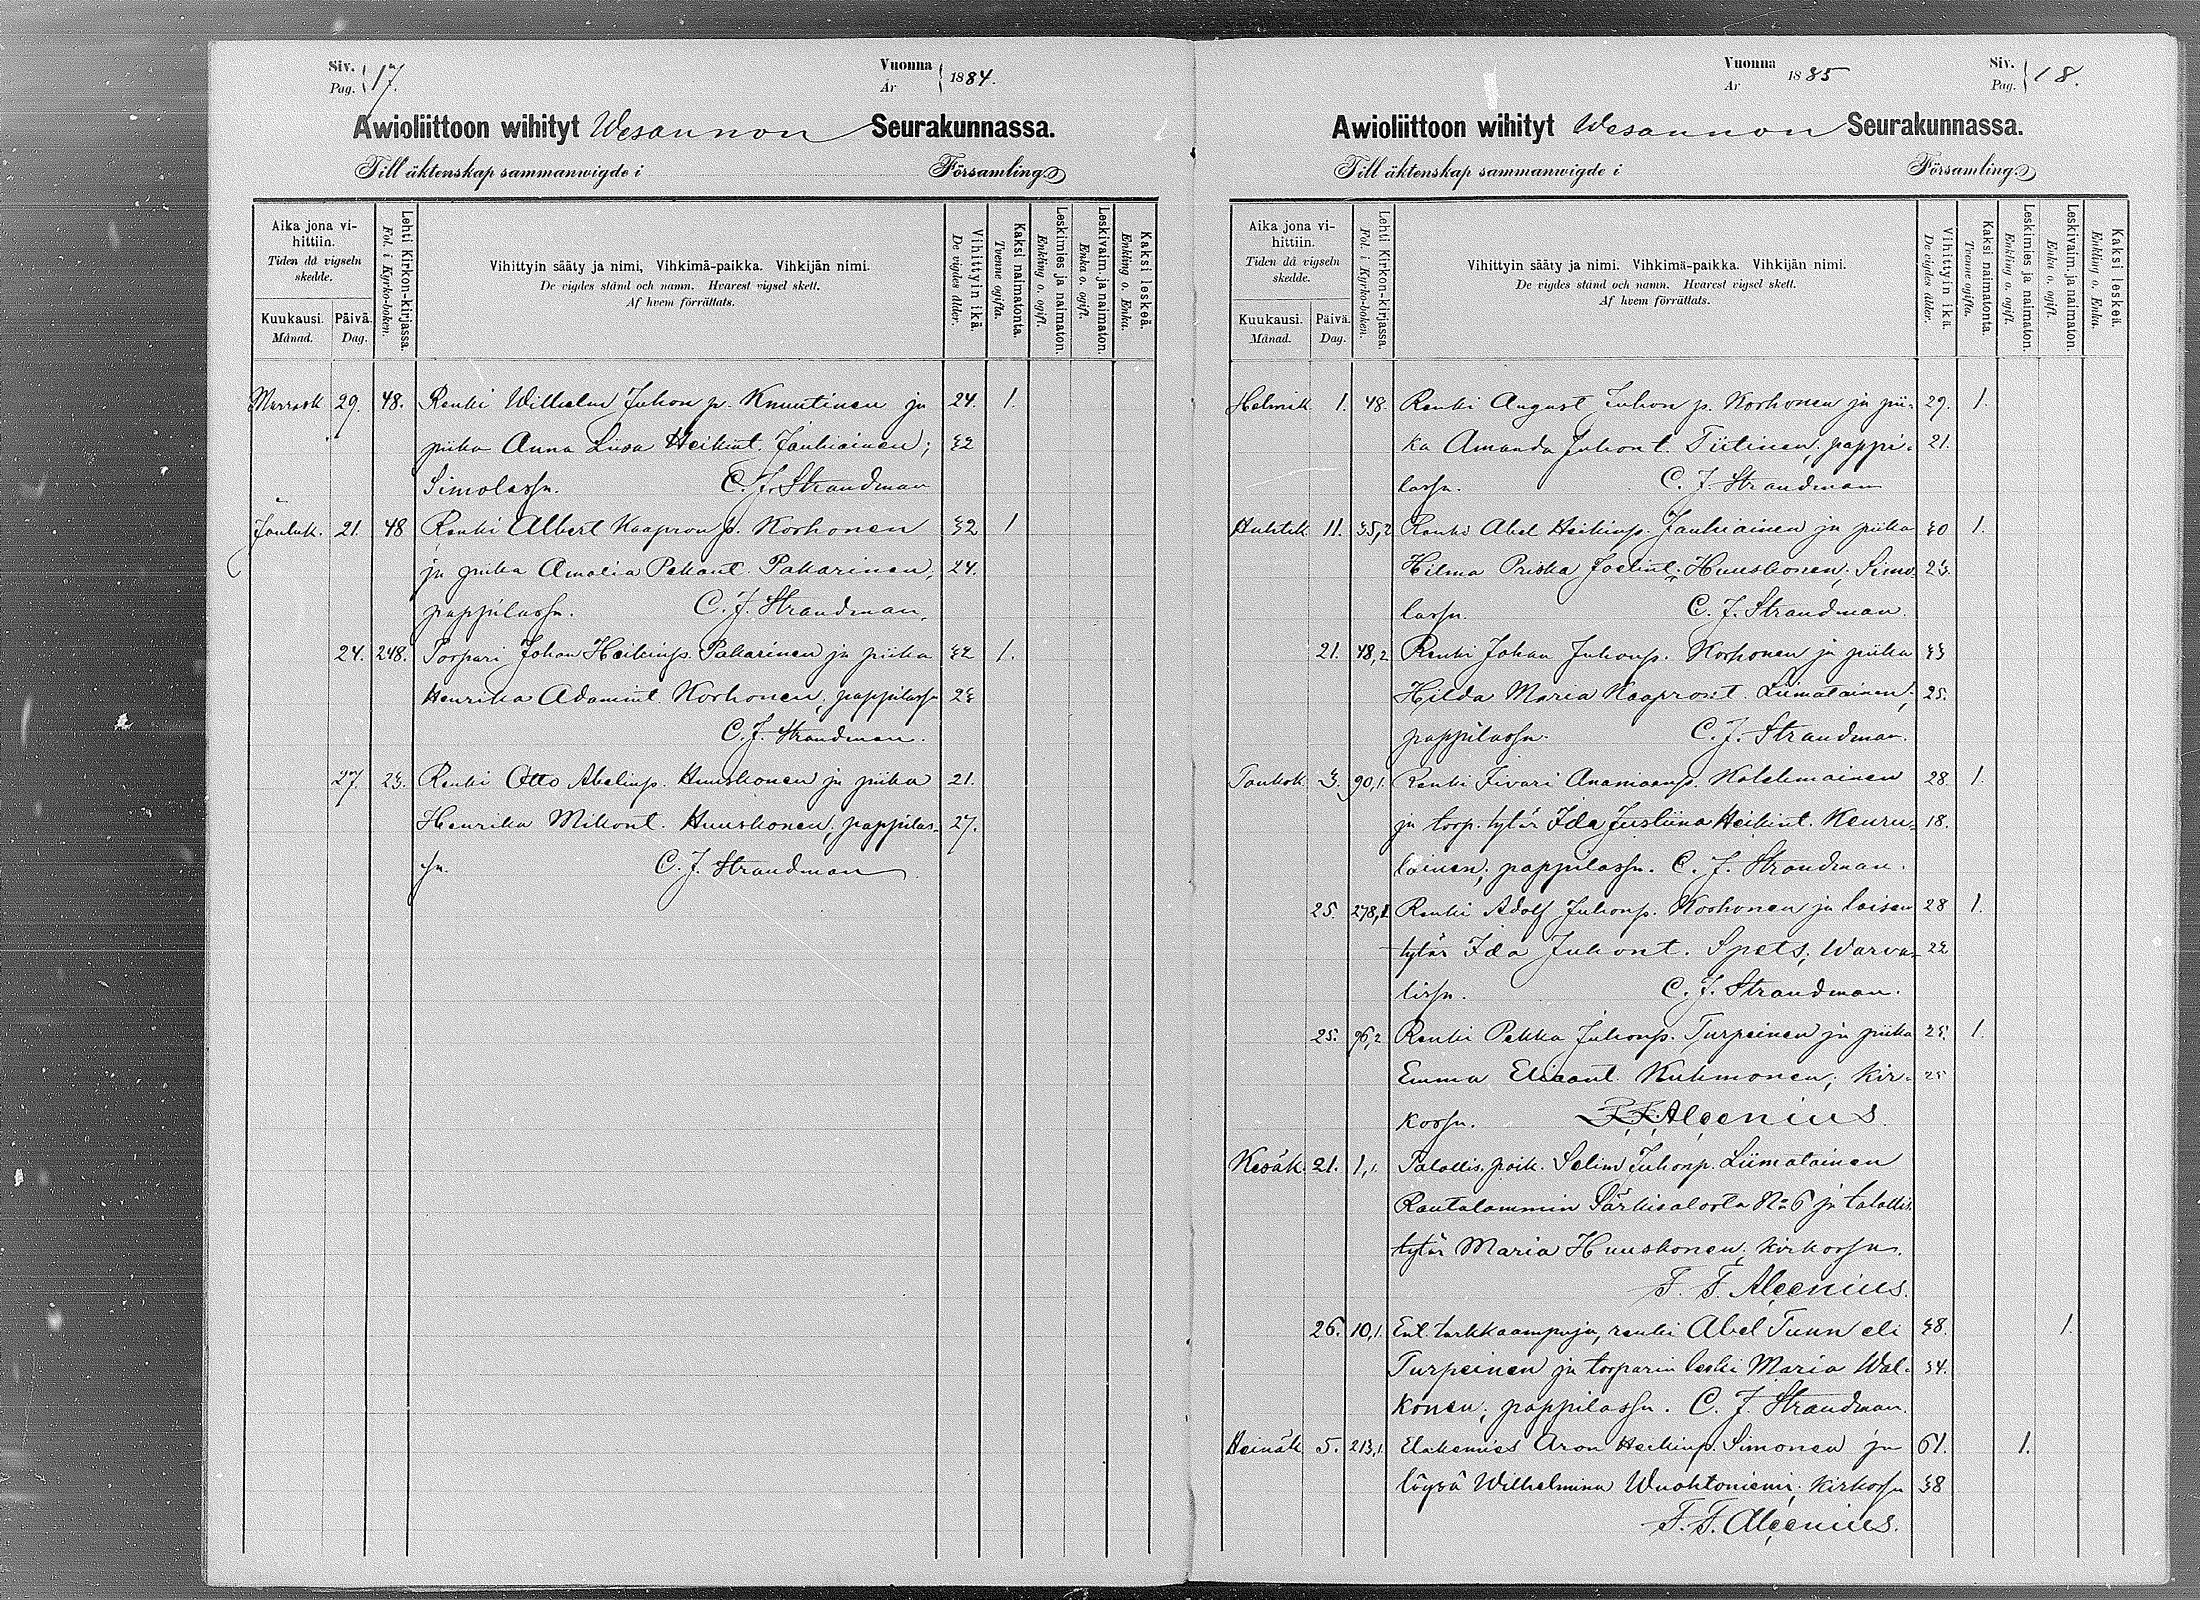 Siv. Pag. 17.
Vuonna År 1884.
Awioliittoon wihityt Wesannon Seurakunnassa.
Till äktenskap sammanwigde i Församling.
Aika jona vihittiin.
Tiden då vigseln skedde.
Kuukausi. Månad.
Päivä. Dag.
Lehti Kirkon-kirjassa.
Fol. i Kyrko-boken.
Vihittyin sääty ja nimi, Vihkimä-paikka. Vihkijän nimi.
De vigdes stånd och namn. Hvarest vigsel skett.
Af hvem förrättats.
Vihittyin ikä.
De vigdes ålder.
Kaksi naimatonta.
Tvenne ogifta.
Leskimies ja naimaton.
Enkling o. ogift.
Leskivaim. ja naimaton.
Enka o. ogift.
Kaksi leskeä.
Enkling o. Enka.
Marrask 29. 48. Renki Wilhelm Juhon p. Knuutinen ja 24. 1.
piika Anna Liisa Heikint. Jauhiainen; 32
Simolassa. C. J. Strandman
Jouluk. 21. 48 Renki Albert Kaapron p. Korhonen 32 1
ja piika Amalia Pekant. Pakarinen, 24.
pappilassa. C. J. Strandman.
24. 248. Torpari Johan Heikinp. Pakarinen ja piika 32 1.
Henrika Adamint. Korhonen, pappilassa 23
C. J. Strandman.
27. 23. Renki Otto Abelinp. Huuskonen ja piika 21.
Henrika Mikont. Huuskonen, pappilas- 27.
sa. C. J. Strandman
Vuonna År 1885
Siv. Pag. 18.
Awioliittoon wihityt Wesannon Seurakunnassa.
Till äktenskap sammanwigde i Församling.
Aika jona vihittiin.
Tiden då vigseln skedde.
Kuukausi. Månad.
Päivä. Dag.
Lehti Kirkon-kirjassa.
Fol. i Kyrko-boken.
Vihittyin sääty ja nimi. Vihkimä-paikka. Vihkijän nimi.
De vigdes stånd och namn. Hvarest vigsel skett.
Af hvem förrättats.
Vihittyin ikä.
De vigdes ålder.
Kaksi naimatonta.
Tvenne ogifta.
Leskimies ja naimaton.
Enkling o. ogift.
Leskivaim. ja naimaton.
Enka o. ogift.
Kaksi leskeä.
Enkling o. Enka.
Helmik 1. 48. Renki August Juhon p. Korhonen ja pii- 29. 1.
ka Amanda Juhont. Tiitinen, pappi- 21.
lassa. C. J. Strandman
Huhtik 11. 35,2 Renki Abel Heikinp. Jauhiainen ja piika 30 1.
Hilma Priska Joelint. Huuskonen; Simo- 23.
lassa. C. J. Strandman.
21. 48,2 Renki Johan Juhonp. Korhonen ja piika 33
Hilda Maria Kaapront. Liimatainen; 25.
pappilassa. C. J. Strandman.
Toukok. 3. 90,1. Renki Iivari Ananiaanp. Kolehmainen 28 1.
ja torp. tytär Ida Justiina Heikint. Keuru- 18.
lainen, pappilassa. C. J. Strandman.
25. 278,1 Renki Adolf Juhonp. Korhonen ja loisen 28 1.
tytär Ida Juhont. Spets, Warva- 22
lissa. C. J. Strandman.
25. 96,2 Renki Pekka Juhonp. Turpeinen ja piika 1.
Emma Eliaant. Kuhmonen; kir- 25
kossa. F. F. Alcenius.
Kesäk. 21. 1,1. Talollis. poik. Selim Juhonp. Liimatainen
Rautalammin Särkisalosta No 6 ja talollis.
tytär Maria Huuskonen, kirkossa.
F. F. Alcenius.
26. 10,1. Ent. tarkkaampuja, renki Abel Tunn eli 38. 1.
Turpeinen ja torparin leski Maria Wal- 34.
konen; pappilassa. C. J. Strandman.
Heinäk 5. 213,1. Eläkemies Aron Heikinp. Simonen ja 61. 1.
löysä Wilhelmina Wuohtoniemi, kirkossa 38
F. F. Alcenius.